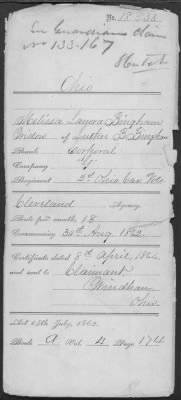 No. 18.533
In Guardians Claim
No 133.167
Ohio
Melissa Lanora Bingham
Widow of Luther G. Bingham
Rank Corporal
Company "I"
Regiment 2d Ohio Cav. Vols
Cleveland Agency.
Rate per month, 18
Commencing 30th Aug. 1862.
Certificate dated 8th April, 1864.
and sent to Claimant
Windham
Ohio
Act 14th July, 1862.
Book A Vol. 4 Page 174